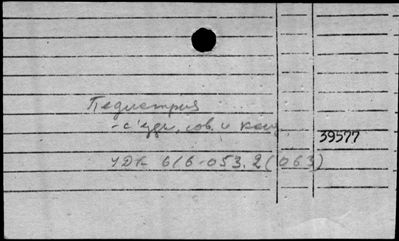 Педиатрия
- с'езди, сов. и кон
39577
УДК 616-053.2(063)